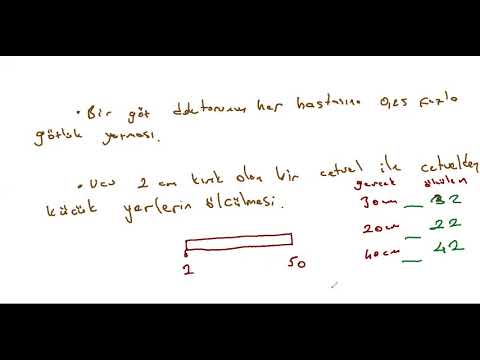 • Bir göt doktorunun her hastasına 0,25 fazla
gözlük yazması.
• Ucu 2 cm kırık olan bir cetvel ile cetvelden
küçük yerlerin ölçülmesi.
gerçek ölçülen
30cm _ 32
20cm _ 22
40cm _ 42
2 50